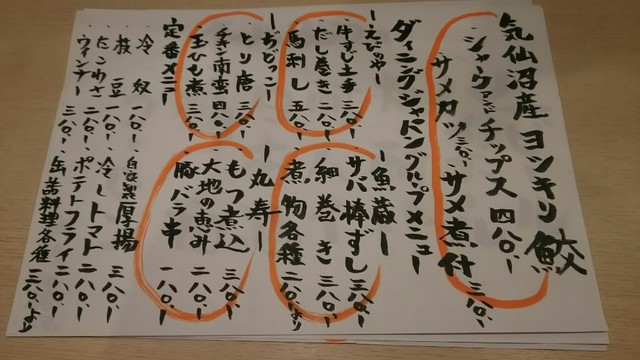 気仙沼産ヨシキリ鮫
シャークアンドチップス 四八〇、ー
サメカツ 三八〇、ー サメ煮付 三八〇、ー
ダイニングジャパングループメニュー
ーえびやー
牛すじ土手 三八〇、ー
だし巻き 二八〇、ー
馬刺し 五八〇、ー
ー魚蔵ー
サバ棒ずし 三八〇、ー
細巻き 三八〇、ー
煮物各種 二八〇、より
ーぢどっこー
とり唐 三八〇、ー
チキン南蛮 四八〇、ー
玉ひも煮 三八〇、ー
ー丸寿ー
もつ煮込 三八〇、ー
大地の恵み 二八〇、ー
豚バラ串 一八〇、ー
定番メニュー
冷奴 一八〇、ー 自家製厚揚 三八〇、ー
枝豆 一八〇、ー 冷しトマト 二八〇、ー
たこわさ 二八〇、ー ポテトフライ 二八〇、ー
ウインナー 三八〇、ー 缶詰料理各種 三八〇、より